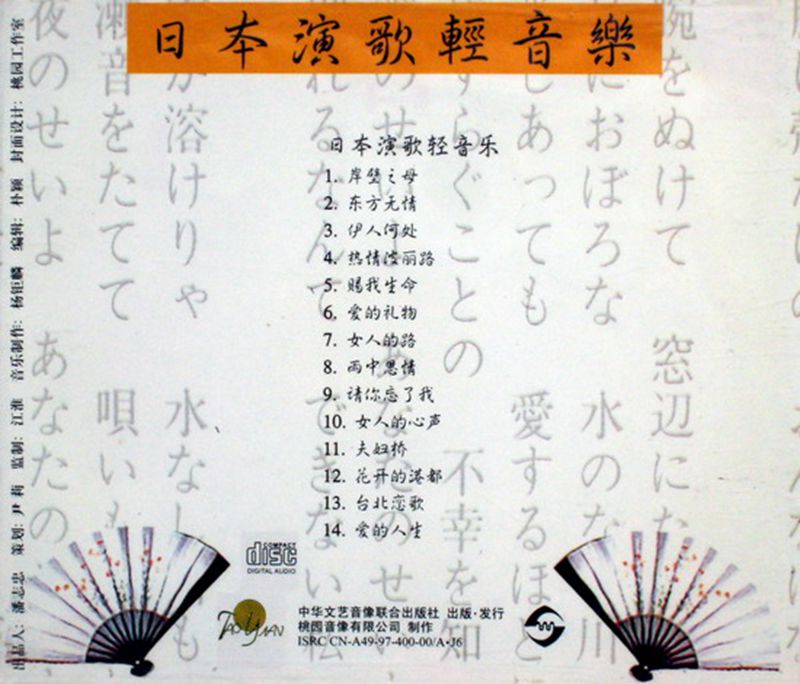 日本演歌輕音樂
日本演歌轻音乐
1. 岸壁之母
2. 东方无情
3. 伊人何处
4. 热情波丽路
5. 赐我生命
6. 爱的礼物
7. 女人的路
8. 雨中恩情
9. 请你忘了我
10. 女人的心声
11. 夫妇桥
12. 花开的港都
13. 台北恋歌
14. 爱的人生
出品人：潘志忠 策划：尹莉 监制：江淮 音乐制作：杨钜麟 编辑：朴颖 封面设计：桃园工作室
COMPACT
disc
DIGITAL AUDIO
TAOYUAN
中华文艺音像联合出版社 出版·发行
桃园音像有限公司 制作
ISRC CN-A49-97-400-00/A·J6
腕をぬけて 窓辺に
におぼろな 水のな 川
しあっても 愛するほど
すらぐことの 不幸を知
のせいよ あなたのせ
れるなんて できない
が溶けりゃ 水なし も
瀬音をたてて 唄いも
夜のせいよ あなたの